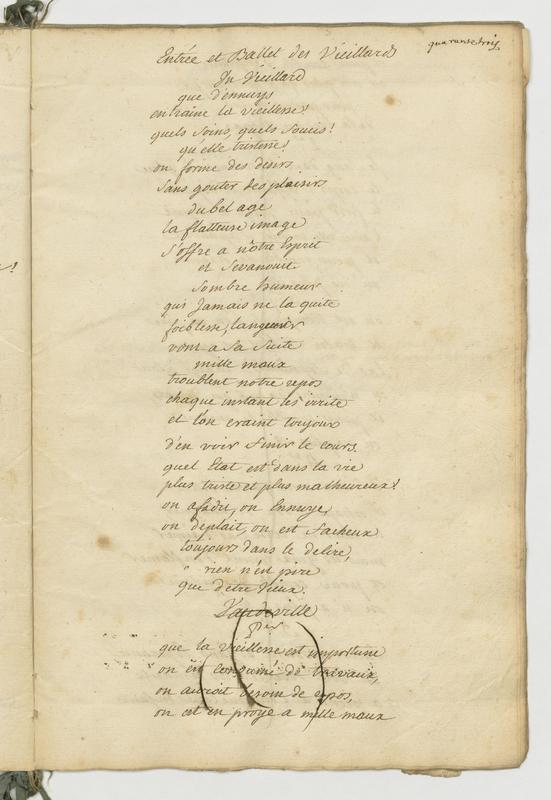 quarante trois
Entrée et Ballet des Vieillards
Un Vieillard
que d'ennuys
entraine la vieillesse!
quels soins, quels soucis!
qu'elle tristesse!
on forme des desirs
sans gouter des plaisirs
du bel age
la flatteuse image
s'offre a nôtre Esprit
et Sevanouit.
Sombre humeur
qui Jamais ne la quite
foiblesse, langueur
vont a Sa Suite
mille maux
troublent notre repos
chaque instant les irrite
et l'on craint toujour
d'en voir finir le cours.
quel Etat est dans la vie
plus triste et plus malheureux!
on on Ennuye,
on deplait, on est facheux
toujours dans le delire,
rien n'est pire
que d'etre Vieux.
Vaudeville
que la vieillesse est importune
on est consumé de travaux,
on auroit besoin de repos,
on est en proye a mille maux